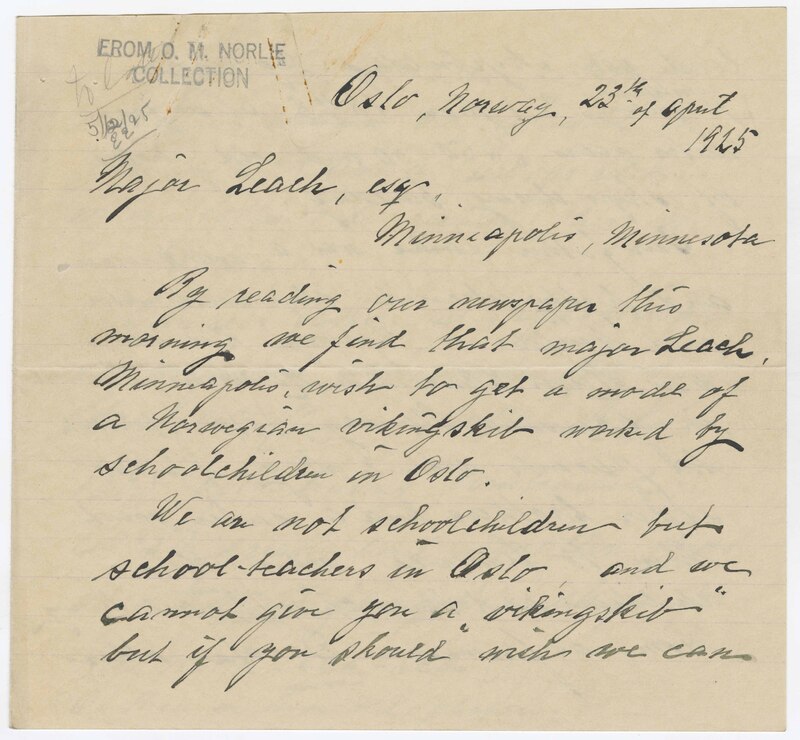 FROM O. M. NORLIE
COLLECTION
5/12/25
Oslo, Norway, 23th of april
1925
Major Leach, esq.,
Minneapolis, Minnesota
By reading our newspaper this
morning we find that major Leach,
Minneapolis, wish to get a model of
a Norwegian vikingskib worked by
schoolchildren in Oslo.
We are not schoolchildren but
school-teachers in Oslo, and we
cannot give you a „vikingskib"
but if you should wish we can